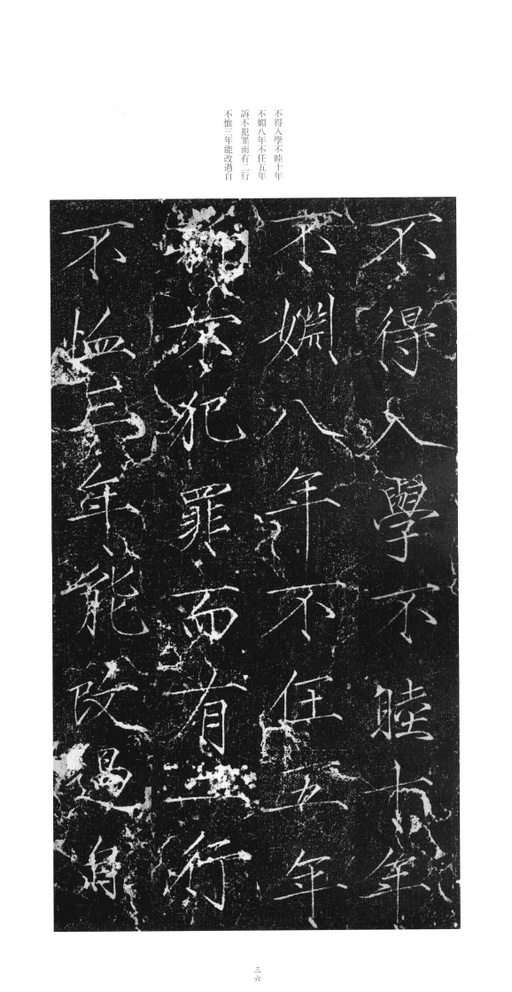 不得入學不睦十年
不婣八年不任五年
訴不犯罪而有二行
不恤三年能改過自
不得入學不睦十年
不婣八年不任五年
不犯罪而有二行
不恤三年能改過自
三六